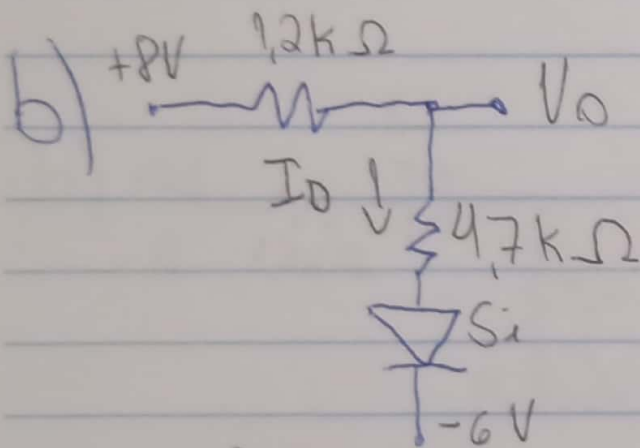 b) +8V 1,2k Ω
Vo
ID
4,7k Ω
Si
-6V